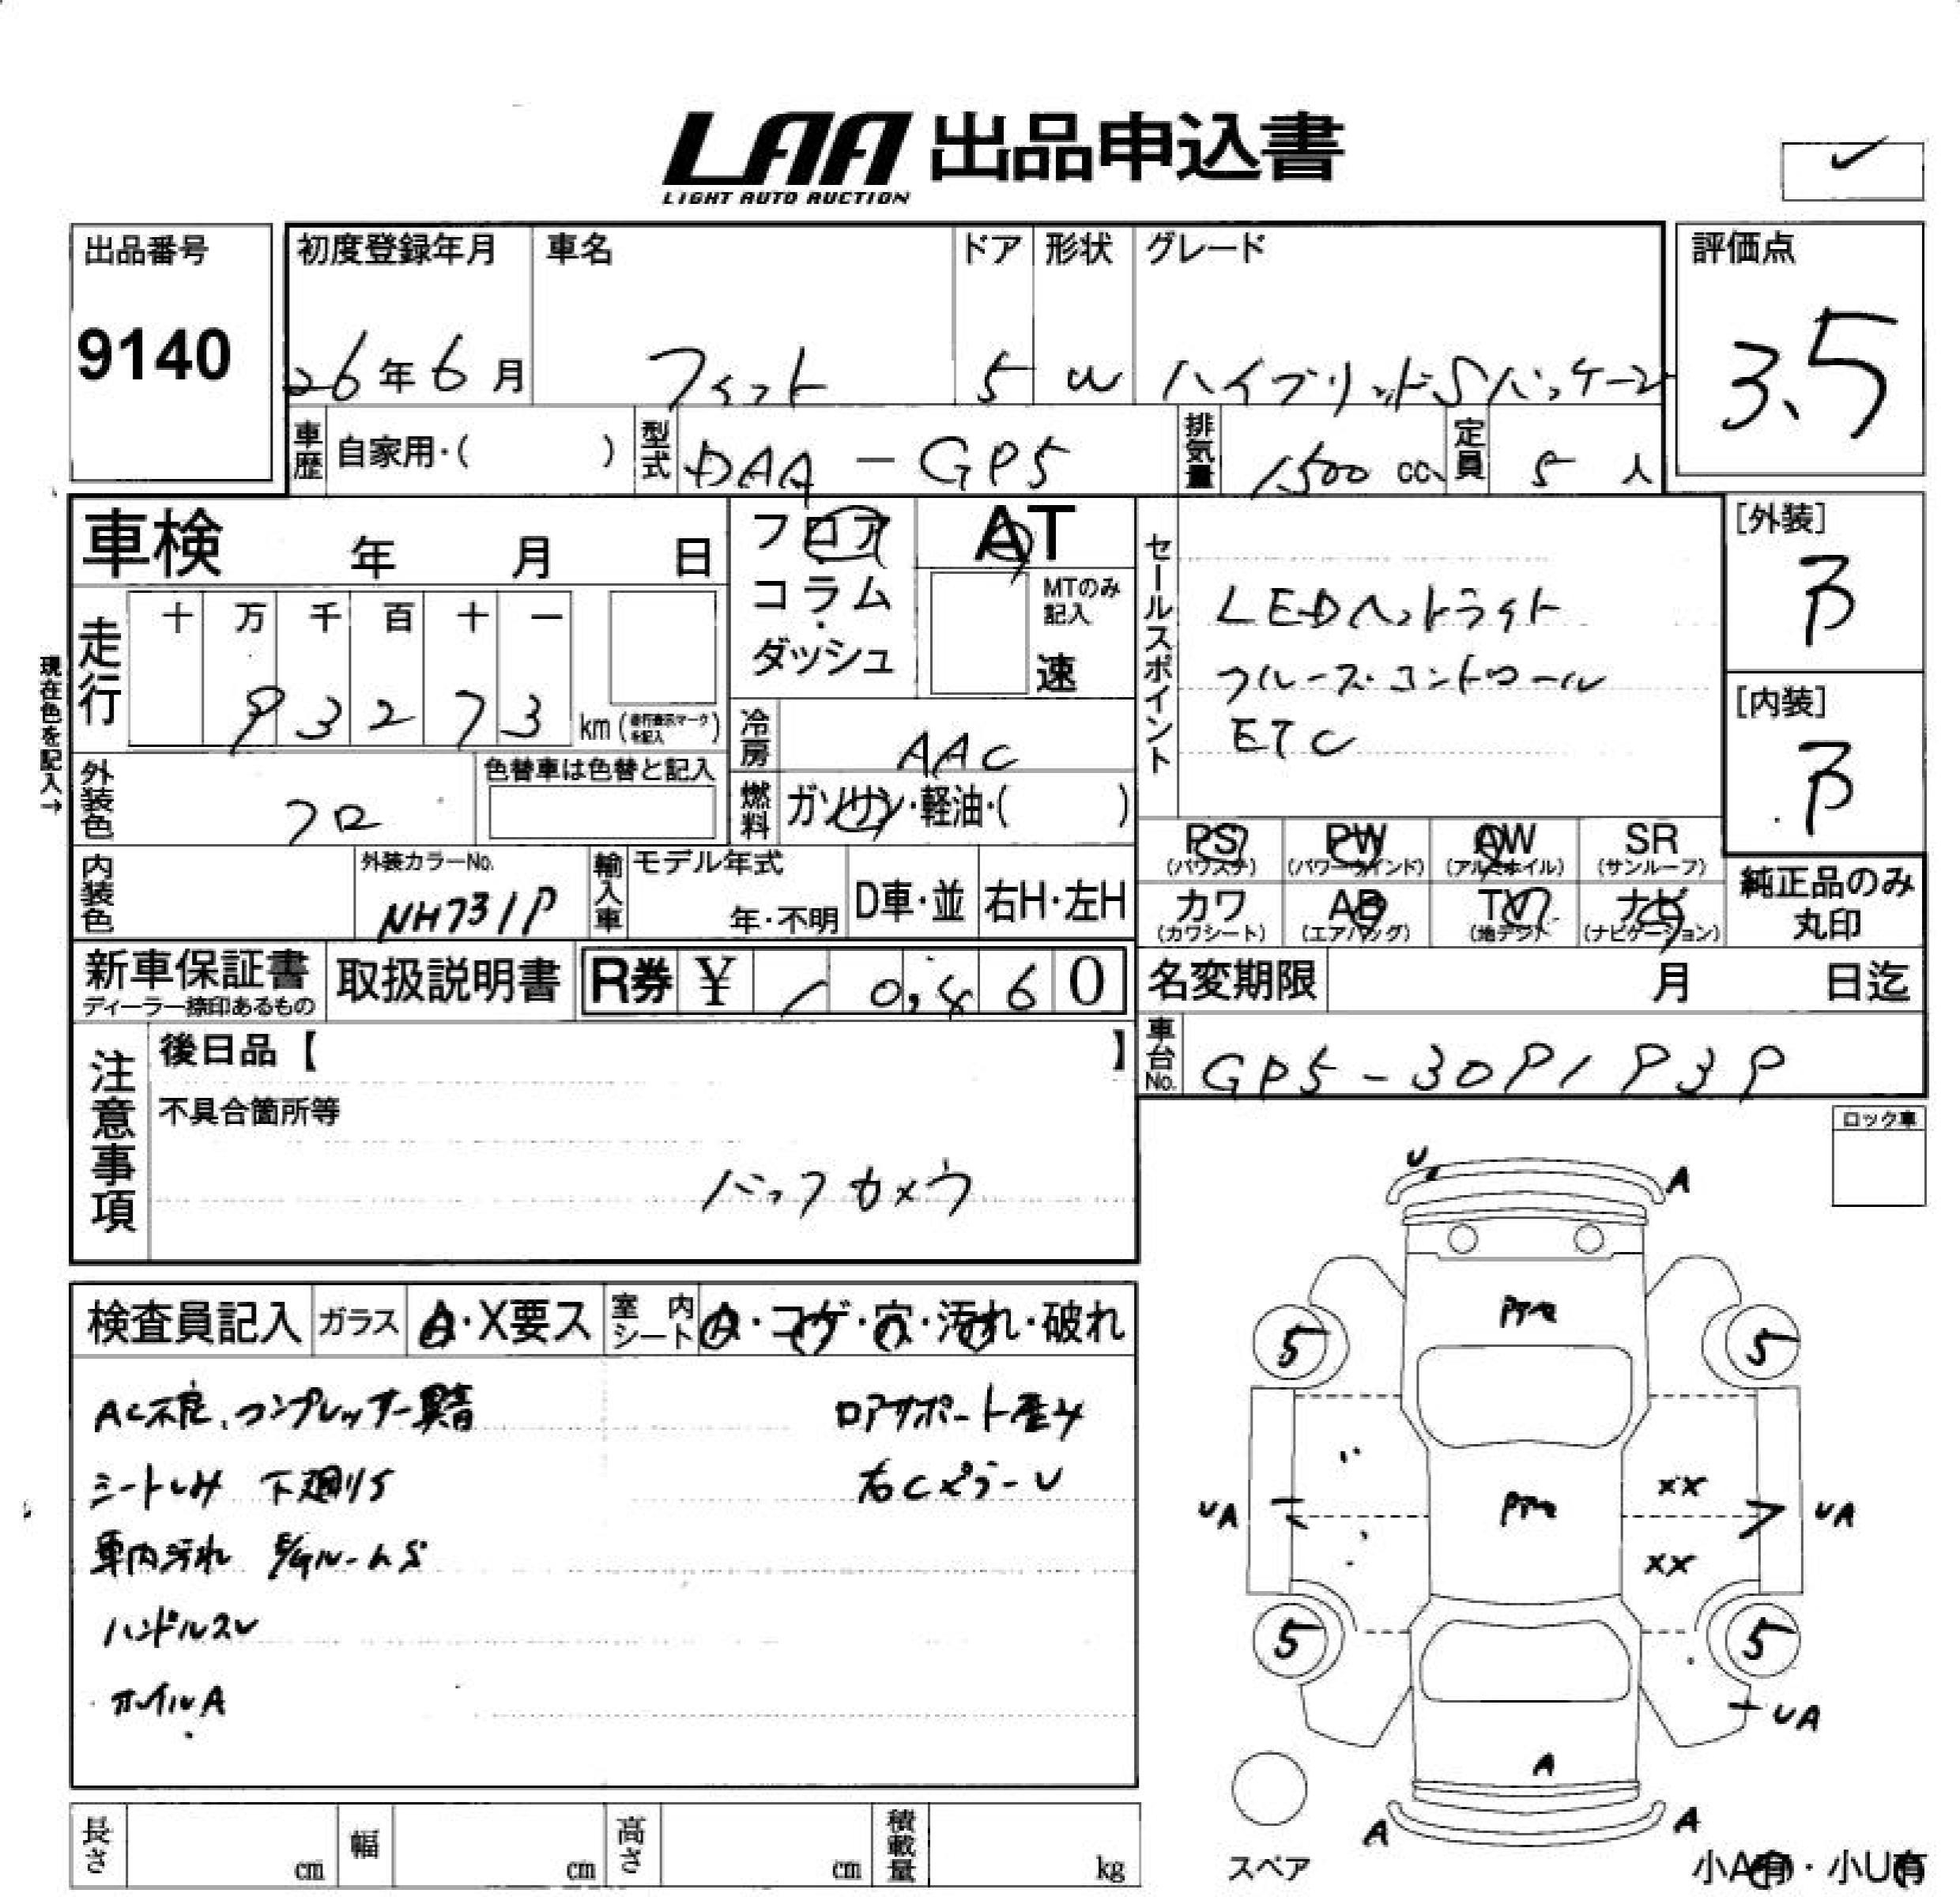 LAA 出品申込書
LIGHT AUTO AUCTION
出品番号
9140
初度登録年月
26年6月
車名
フィット
ドア
5
形状
W
グレード
ハイブリッドSパッケージ
評価点
3.5
車歴 自家用・( )
型式 DAA-GP5
排気量 1500 cc
定員 5 人
車検 年 月 日
フロア
コラム
ダッシュ
AT
MTのみ記入
速
セールスポイント
LEDヘットライト
クルーズ・コントロール
ETC
[外装]
B
[内装]
B
現在色を記入→
走行
十 万 千 百 十 一
9 3 2 7 3 km (走行表示マークを記入)
冷房 AAC
外装色 クロ
色替車は色替と記入
燃料 ガソリン・軽油・( )
PS (パワステ)
PW (パワーウインド)
AW (アルミホイル)
SR (サンルーフ)
カワ (カワシート)
AB (エアバッグ)
TV (地デジ)
ナビ (ナビゲーション)
純正品のみ
丸印
内装色
外装カラーNo.
NH731P
輸入車
モデル年式
年・不明
D車・並
右H・左H
新車保証書
ディーラー捺印あるもの
取扱説明書
R券 ¥ 1 0, 8 6 0
名変期限 月 日迄
車台No. GP5-3091939
注意事項
後日品【 】
不具合箇所等
バックカメラ
ロック車
検査員記入
ガラス A・X要ス
室内シート A・コゲ・穴・汚れ・破れ
AC不良、コンプレッサー異音
ロアサポート歪み
シートしみ 下廻りS
右CピラーU
車内汚れ E/GルームS
ハンドルスレ
ホイルA
U A
5 5
XX
UA UA
XX
5 5
UA
A
A A
スペア
小A有・小U有
長さ cm
幅 cm
高さ cm
積載量 kg